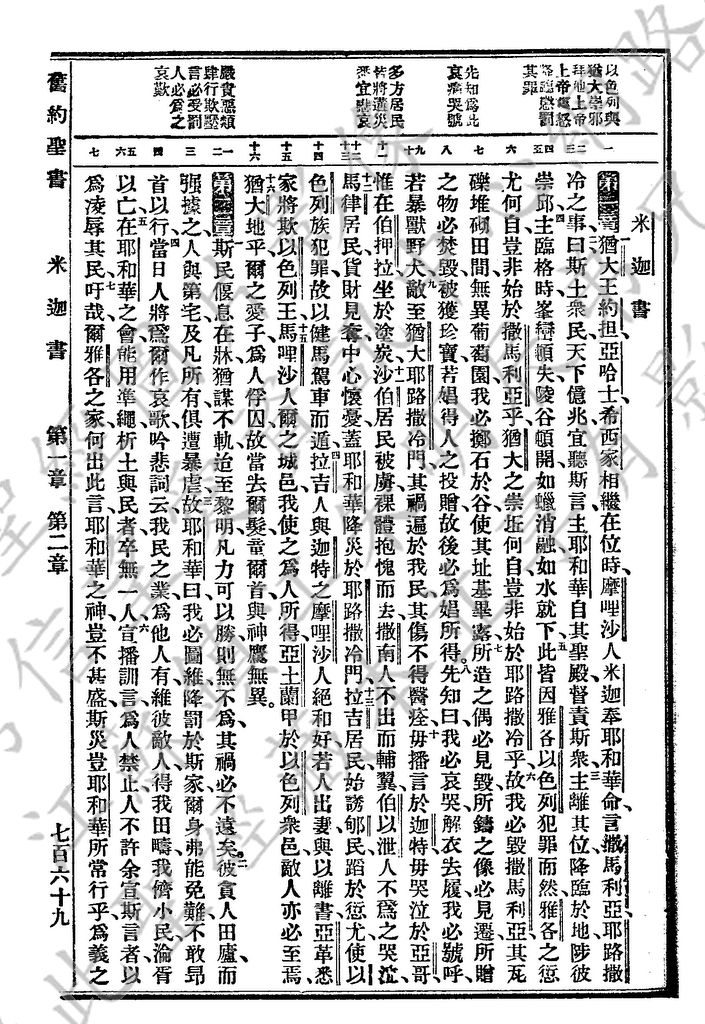 米迦書
以色列與
猶大學邪
拜他上帝
上帝震怒
降臨懲罰
其罪
先知爲此
哀痛哭號
多方居民
皆將遘災
悉宜悲哀
嚴責惡類
肆行欺壓
言必受罰
人必爲之
哀歎
一
二
三
四
五
六
七
八
九
十
十一
十二
十三
十四
十五
十六
一
二
三
四
五
六
七
第一章猶大王約担亞哈士希西家相繼在位時摩哩沙人米迦奉耶和華命言撒馬利亞耶路撒
冷之事曰斯土衆民天下億兆宜聽斯言主耶和華自其聖殿督責斯衆主離其位降臨於地陟彼
崇邱主臨格時峯巒頓失陵谷頓開如蠟消融如水就下此皆因雅各以色列犯罪而然雅各之愆
尤何自豈非始於撒馬利亞乎猶大之崇坵何自豈非始於耶路撒冷乎故我必毀撒馬利亞其瓦
礫堆砌田間無異葡萄園我必擲石於谷使其址基畢露所造之偶必見毀所鑄之像必見遷所贈
之物必焚毀被獲珍寶若娼得人之投贈故後必爲娼所得先知曰我必哀哭解衣去履我必號呼
若暴獸野犬敵至猶大耶路撒冷門其禍逼於我民其傷不得醫痊毋播言於迦特毋哭泣於亞哥
惟在伯押拉坐於塗炭沙伯居民被虜裸體抱愧而去撒南人不出而輔翼伯以泄人不爲之哭泣
馬律居民貨財見奪中心懷憂蓋耶和華降災於耶路撒冷門拉吉居民始誘郇民蹈於愆尤使以
色列族犯罪故以健馬駕車而遁拉吉人與迦特之摩哩沙人絕和好若人出妻與以離書亞革悉
家將欺以色列王馬哩沙人爾之城邑我使之爲人所得亞土蘭甲於以色列衆邑敵人亦必至焉
猶大地乎爾之愛子爲人俘囚故當去爾髮童爾首與神鷹無異。
第二章斯民偃息在牀猶謀不軌迨至黎明凡力可以勝則無不爲其禍必不遠矣彼貪人田廬而
强據之人與第宅及凡所有俱遭暴虐故耶和華曰我必圖維降罰於斯家爾身弗能免難不敢昂
首以行當日人將爲爾作哀歌吟悲詞云我民之業爲他人有維彼敵人得我田疇我儕小民淪胥
以亡在耶和華之會能用準繩析土與民者卒無一人宣播訓言爲人禁止人不許余宣斯言者以
爲凌辱其民吁哉爾雅各之家何出此言耶和華之神豈不甚盛斯災豈耶和華所常行乎爲義之
舊約聖書 米迦書 第一章 第二章 七百六十九